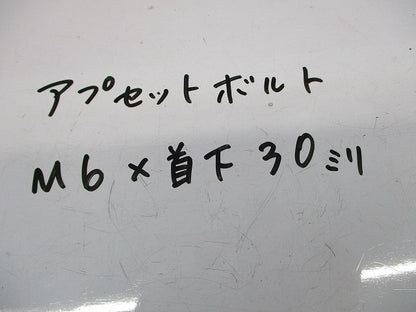 アプセットボルト
M6×首下30ミリ